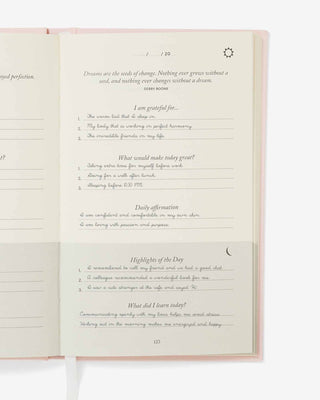 oyed perfection.
t?
/ / 20
Dreams are the seeds of change. Nothing ever grows without a
seed, and nothing ever changes without a dream.
DEBBY BOONE
I am grateful for...
1. The warm bed that I sleep in.
2. My body that is working in perfect harmony.
3. The incredible friends in my life.
What would make today great?
1. Taking extra time for myself before work.
2. Going for a walk after lunch.
3. Sleeping before 11:30 PM.
Daily affirmation
I am confident and comfortable in my own skin.
I am living with passion and purpose.
Highlights of the Day
1. I remembered to call my friend and we had a good chat.
2. A colleague recommended a wonderful book for me.
3. I saw a cute stranger at the cafe and said 'Hi'.
What did I learn today?
Communicating openly with my boss helps me avoid stress.
Working out in the morning makes me energized and happy.
123